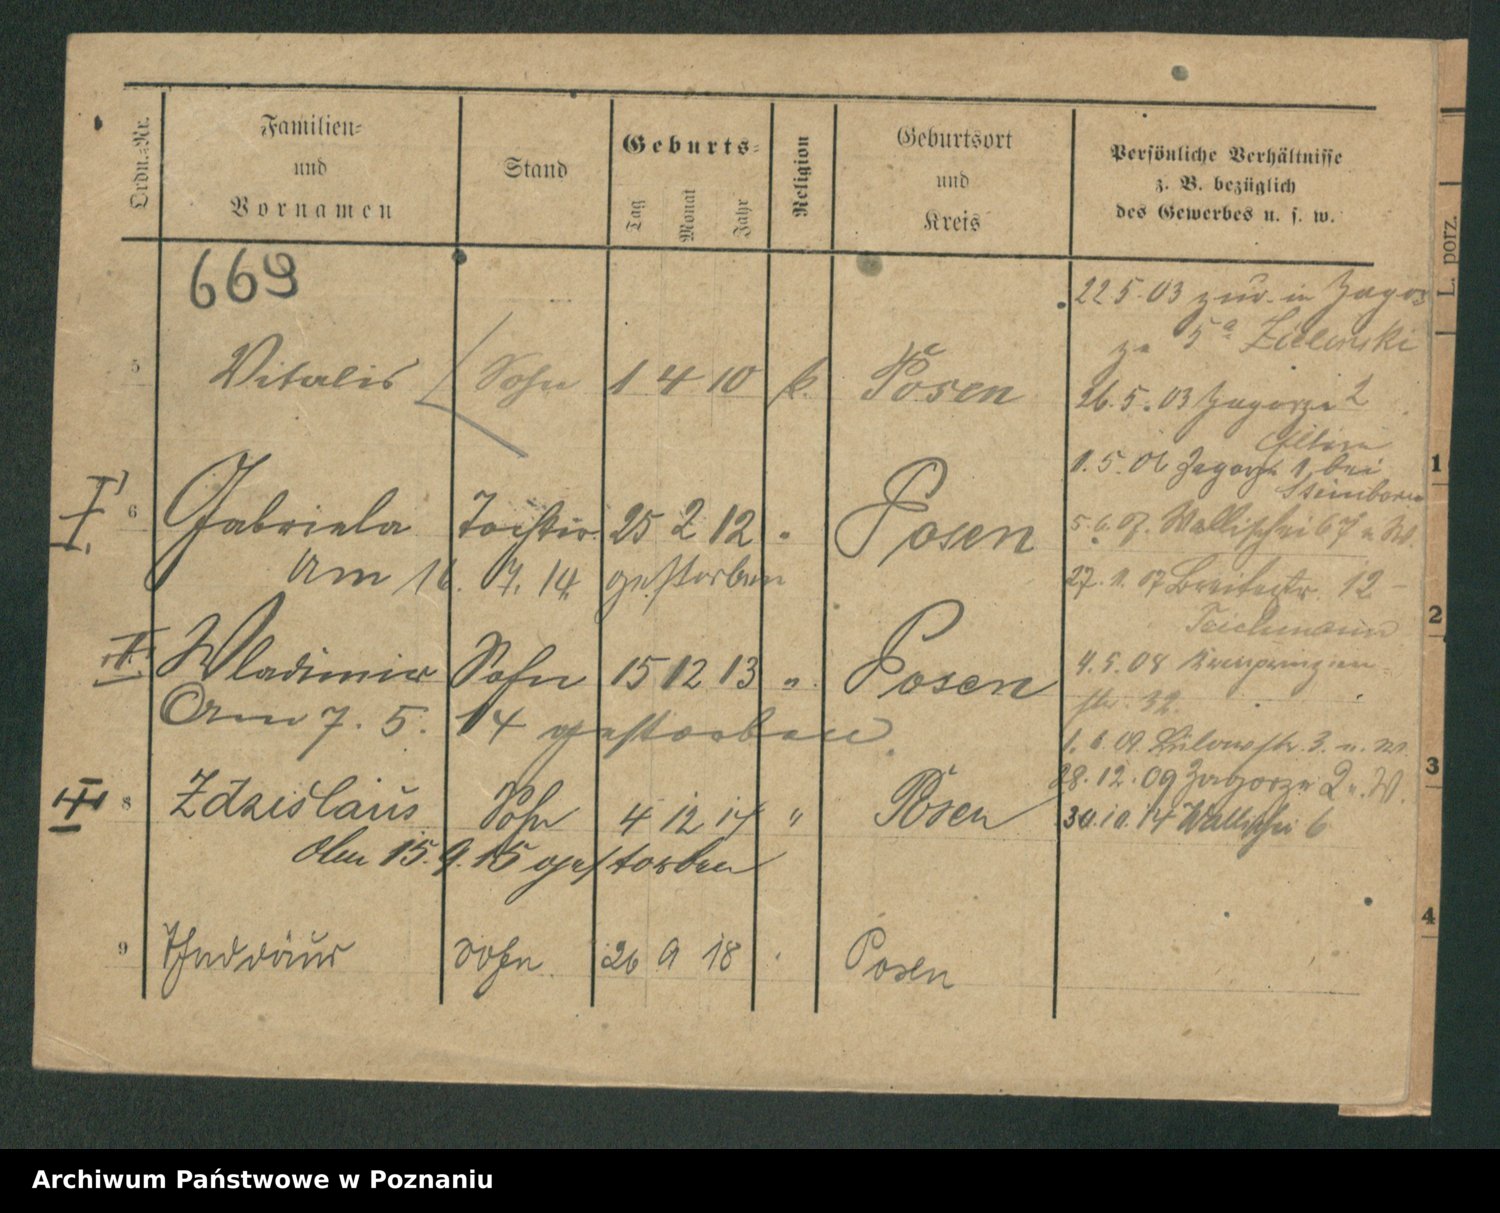 Ordn.-Nr.
Familien-
und
Vornamen
Stand
Geburts-
Tag
Monat
Jahr
Religion
Geburtsort
und
Kreis
Persönliche Verhältnisse
z. B. bezüglich
des Gewerbes u. s. w.
L. porz.
669
22 5. 03 zur. in Zagor
ze 5a Zielinski
5 Vitalis Sohn 1 4 10 k. Posen
26. 5. 03 Zagorze 2
Eltern
1. 5. 06 Zagorze 1, bei
Steinborn
I 6 Gabriela Tochter 25 2 12 " Posen
5. 6. 07. Wallischei 67 u. W.
am 16. 7. 14 gestorben
27. 1. 07 Breitestr. 12
Teichmann
II. Wladimir Sohn 15 12 13 " Posen
4. 5. 08 Kronprinzen-
str. 32.
Am 7. 5. 14 gestorben.
1. 6. 09. Bülowstr. 3. u. W.
28. 12. 09 Zagorze 2 u. W.
III 8 Zdzislaus Sohn 4 12 14 " Posen
30. 10. 14 Wallischei 6
Am 15. 9. 15 gestorben
9 Thaddäus Sohn 26 9 18 Posen
1
2
3
4
Archiwum Państwowe w Poznaniu